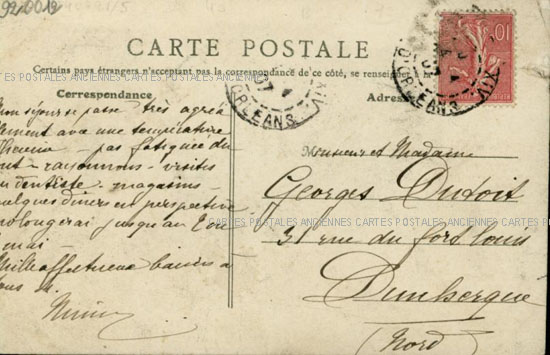 92001
CARTE POSTALE
Certains pays étrangers n'acceptant pas la correspondance de ce côté, se renseigner
CARTES POSTALES ANCIENNES CARTES POSTALES ANCIENNES CARTES POSTALES ANCIENNES
Correspondance
Adres
10
ORLEANS
ORLEANS
mon séjour se passe très agréa
lement avec une température
pas fatiguée du
rayonnons - visites
dentiste - magasins -
quelques diners en perspective
olongerai jusqu'au
mai -
Mille affectueux baisers à
ous
Monsieur et Madame
Georges Dutoit
31 rue du fort Louis
Dunkerque
(Nord)
CARTES POSTALES ANCIENNES CARTES POSTALES ANCIENNES